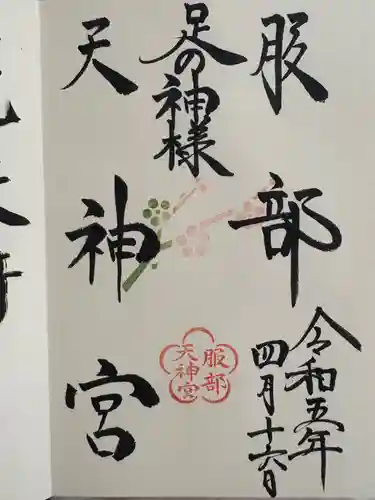 服部
足の神様
天神宮
令和五年
四月十六日
服部
天神宮